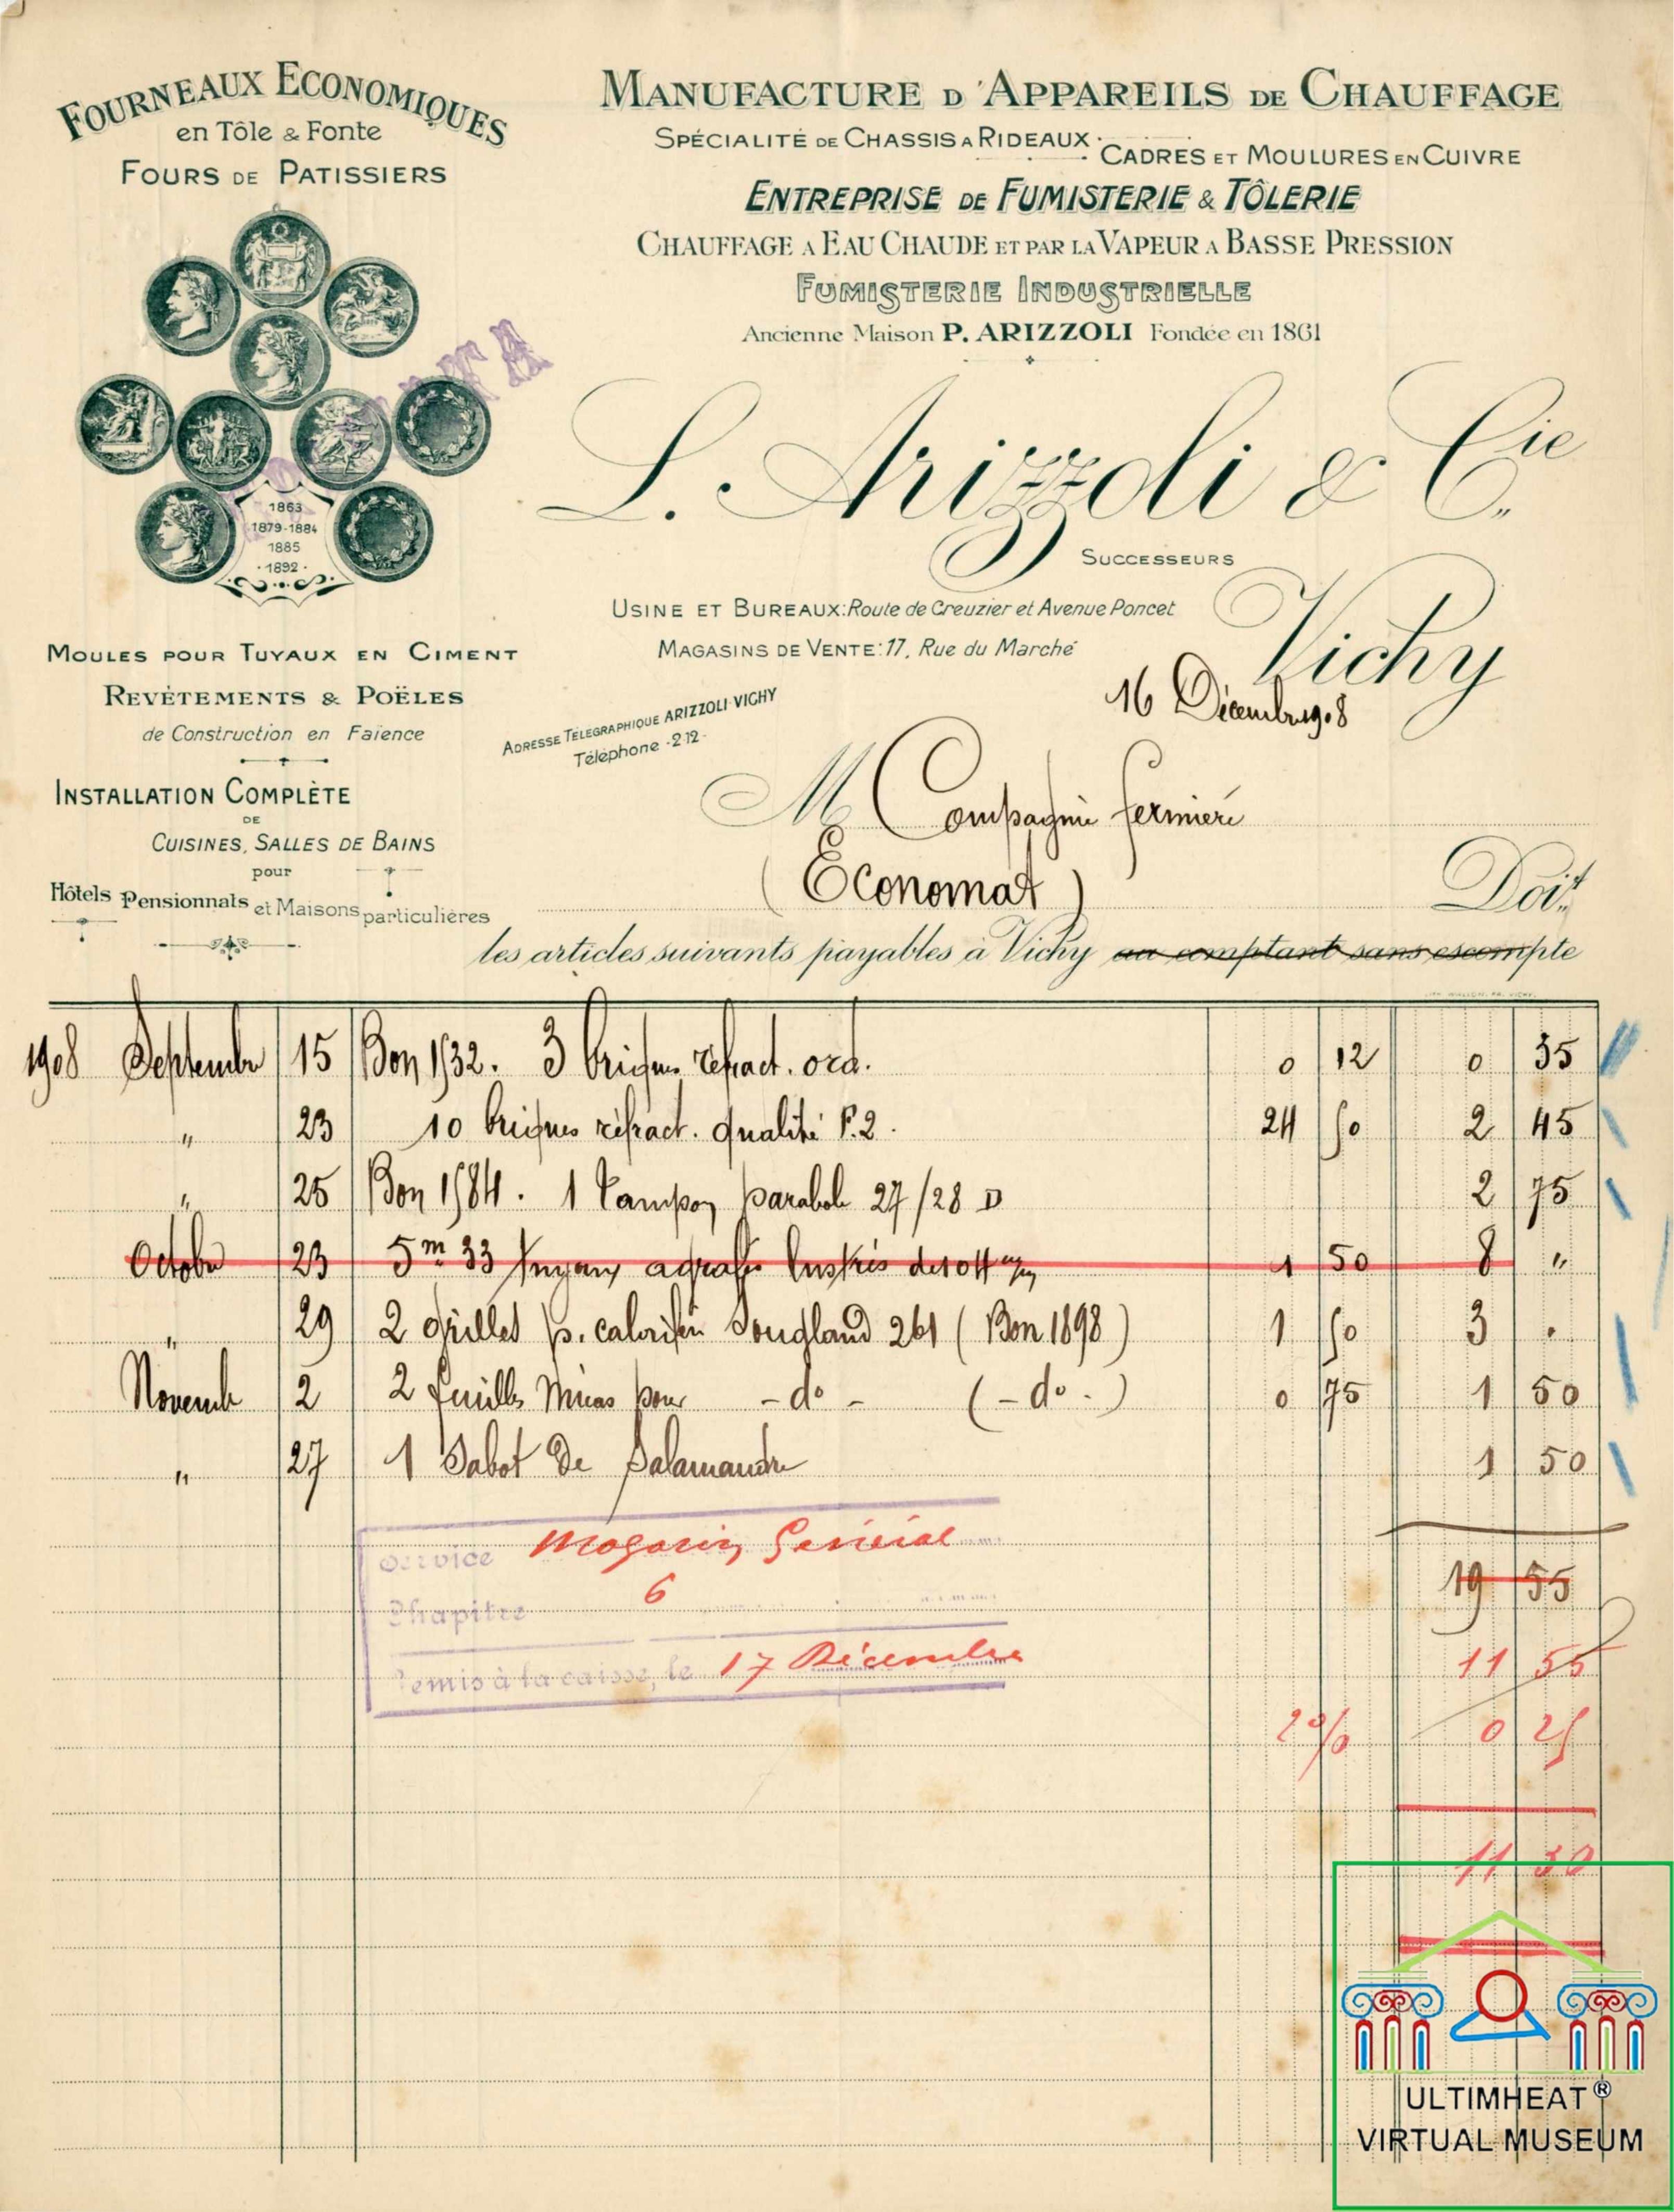 FOURNEAUX ECONOMIQUES
en Tôle & Fonte
FOURS DE PATISSIERS
1863
1879-1884
1885
·1892·
MOULES POUR TUYAUX EN CIMENT
REVÊTEMENTS & POËLES
de Construction en Faïence
INSTALLATION COMPLÈTE
DE
CUISINES, SALLES DE BAINS
pour
Hôtels Pensionnats et Maisons particulières
MANUFACTURE D'APPAREILS DE CHAUFFAGE
SPÉCIALITÉ DE CHASSIS A RIDEAUX · CADRES ET MOULURES EN CUIVRE
ENTREPRISE DE FUMISTERIE & TÔLERIE
CHAUFFAGE A EAU CHAUDE ET PAR LA VAPEUR A BASSE PRESSION
FUMISTERIE INDUSTRIELLE
Ancienne Maison P. ARIZZOLI Fondée en 1861
L. Arizzoli & Cie
SUCCESSEURS
USINE ET BUREAUX: Route de Creuzier et Avenue Poncet
MAGASINS DE VENTE: 17, Rue du Marché
Vichy
16 Décembre 1908
ADRESSE TÉLÉGRAPHIQUE ARIZZOLI-VICHY
Téléphone -2.12-
M Compagnie fermière
(Economat)
Doit
les articles suivants payables à Vichy au comptant sans escompte
1908 Septembre 15 Bon 1532. 3 briques réfract. ord. 0 12 0 35
" 23 10 briques réfract. qualité P.2. 24 50 2 45
" 25 Bon 1584. 1 Tampon parabole 27/28 D 2 75
Octobre 23 5m 33 Tuyaux agrafés lustrés de 1 50 8 "
" 29 2 grilles p. calorifère Sougland 261 (Bon 1898) 1 50 3 .
Novembre 2 2 feuilles Micas pour - do - (- do -) 0 75 1 50
" 27 1 Sabot de Salamandre 1 50
19 55
Service Magasin Général
Chapitre 6
Remis à la caisse, le 17 Décembre
11 55
2% 0 25
11 30
ULTIMHEAT®
VIRTUAL MUSEUM